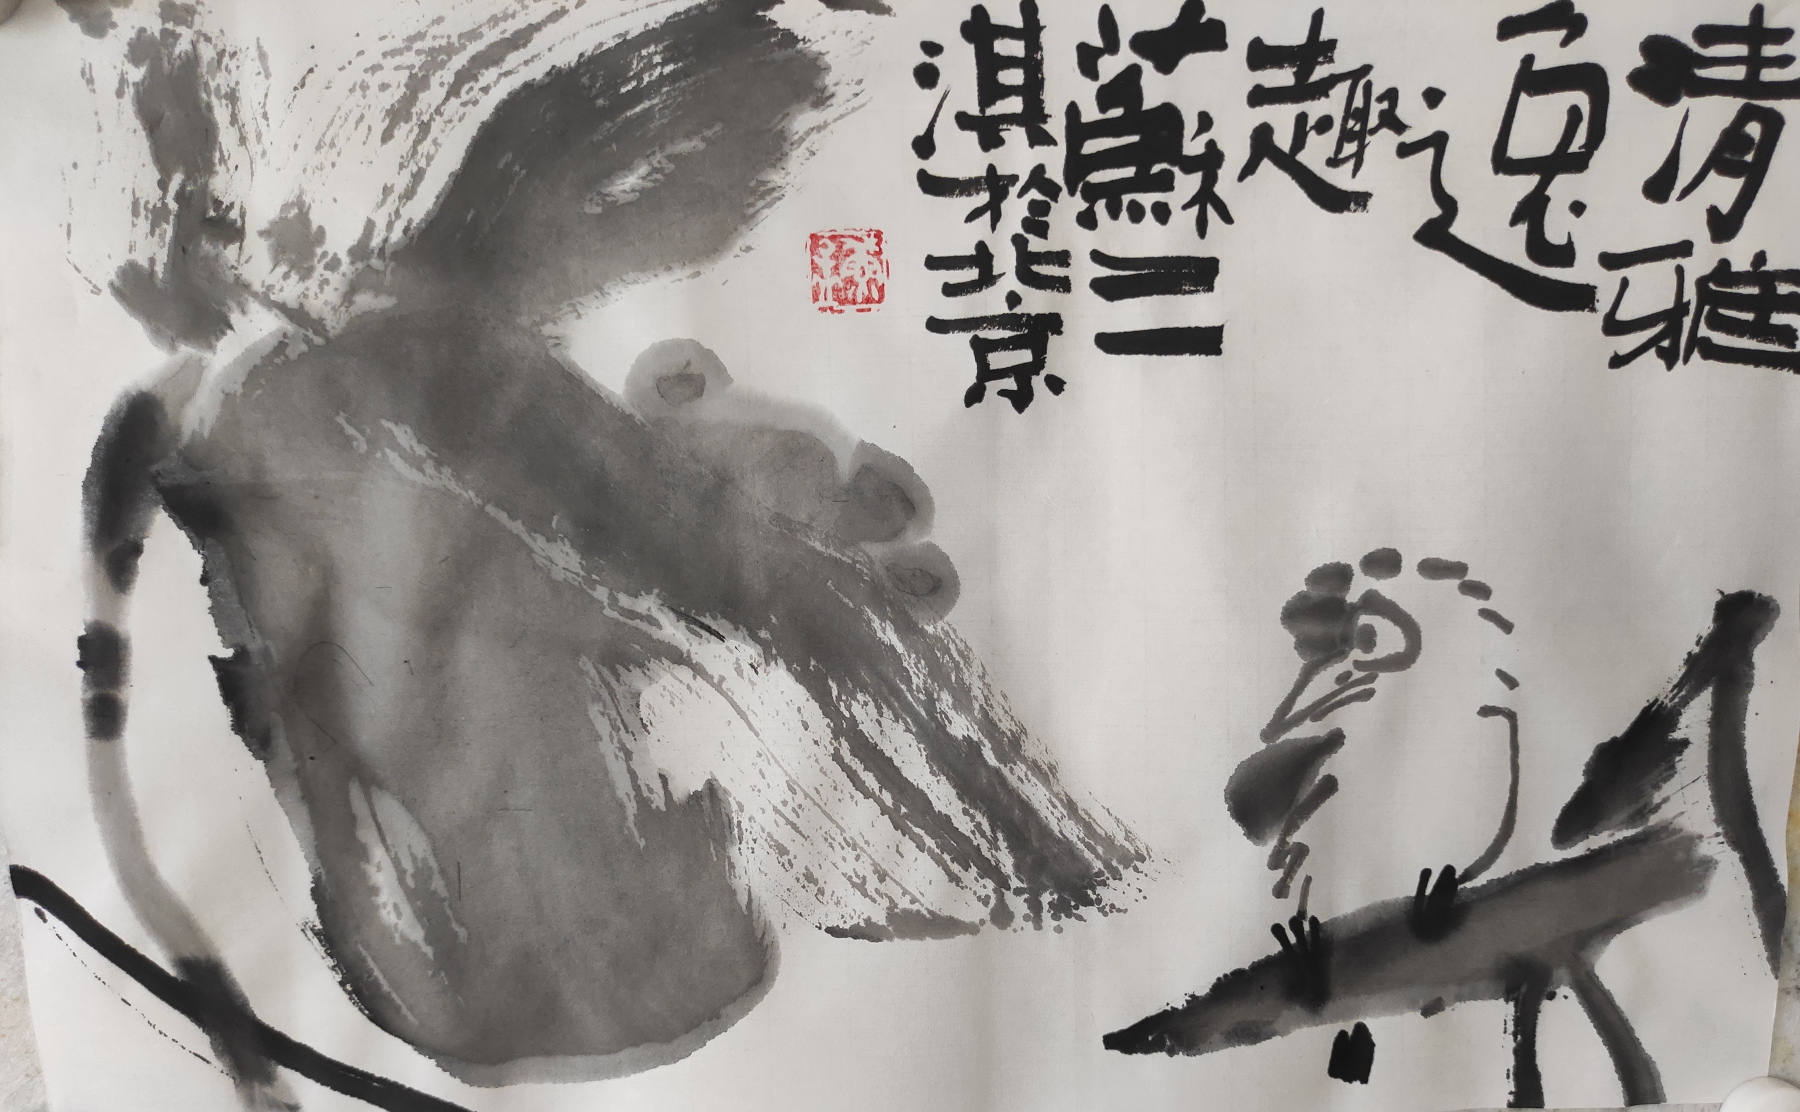 清雅
逸
趣
蘇三
淇於北京